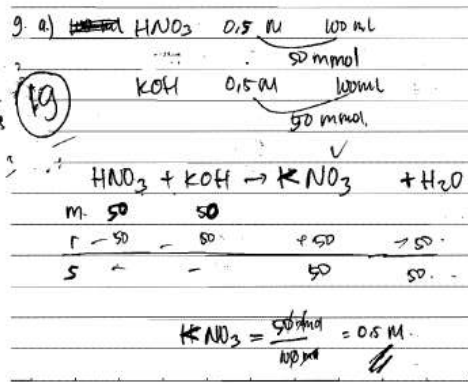 9. a.) HNO3 0,5 M 100 ml
50 mmol
KOH 0,5 M 100 ml
50 mmol.
19
HNO3 + KOH → KNO3 + H2O
m. 50 50
r - 50 - 50. + 50 + 50.
s - - 50 50.
KNO3 = 50 mmol / 100 ml = 0.5 M.